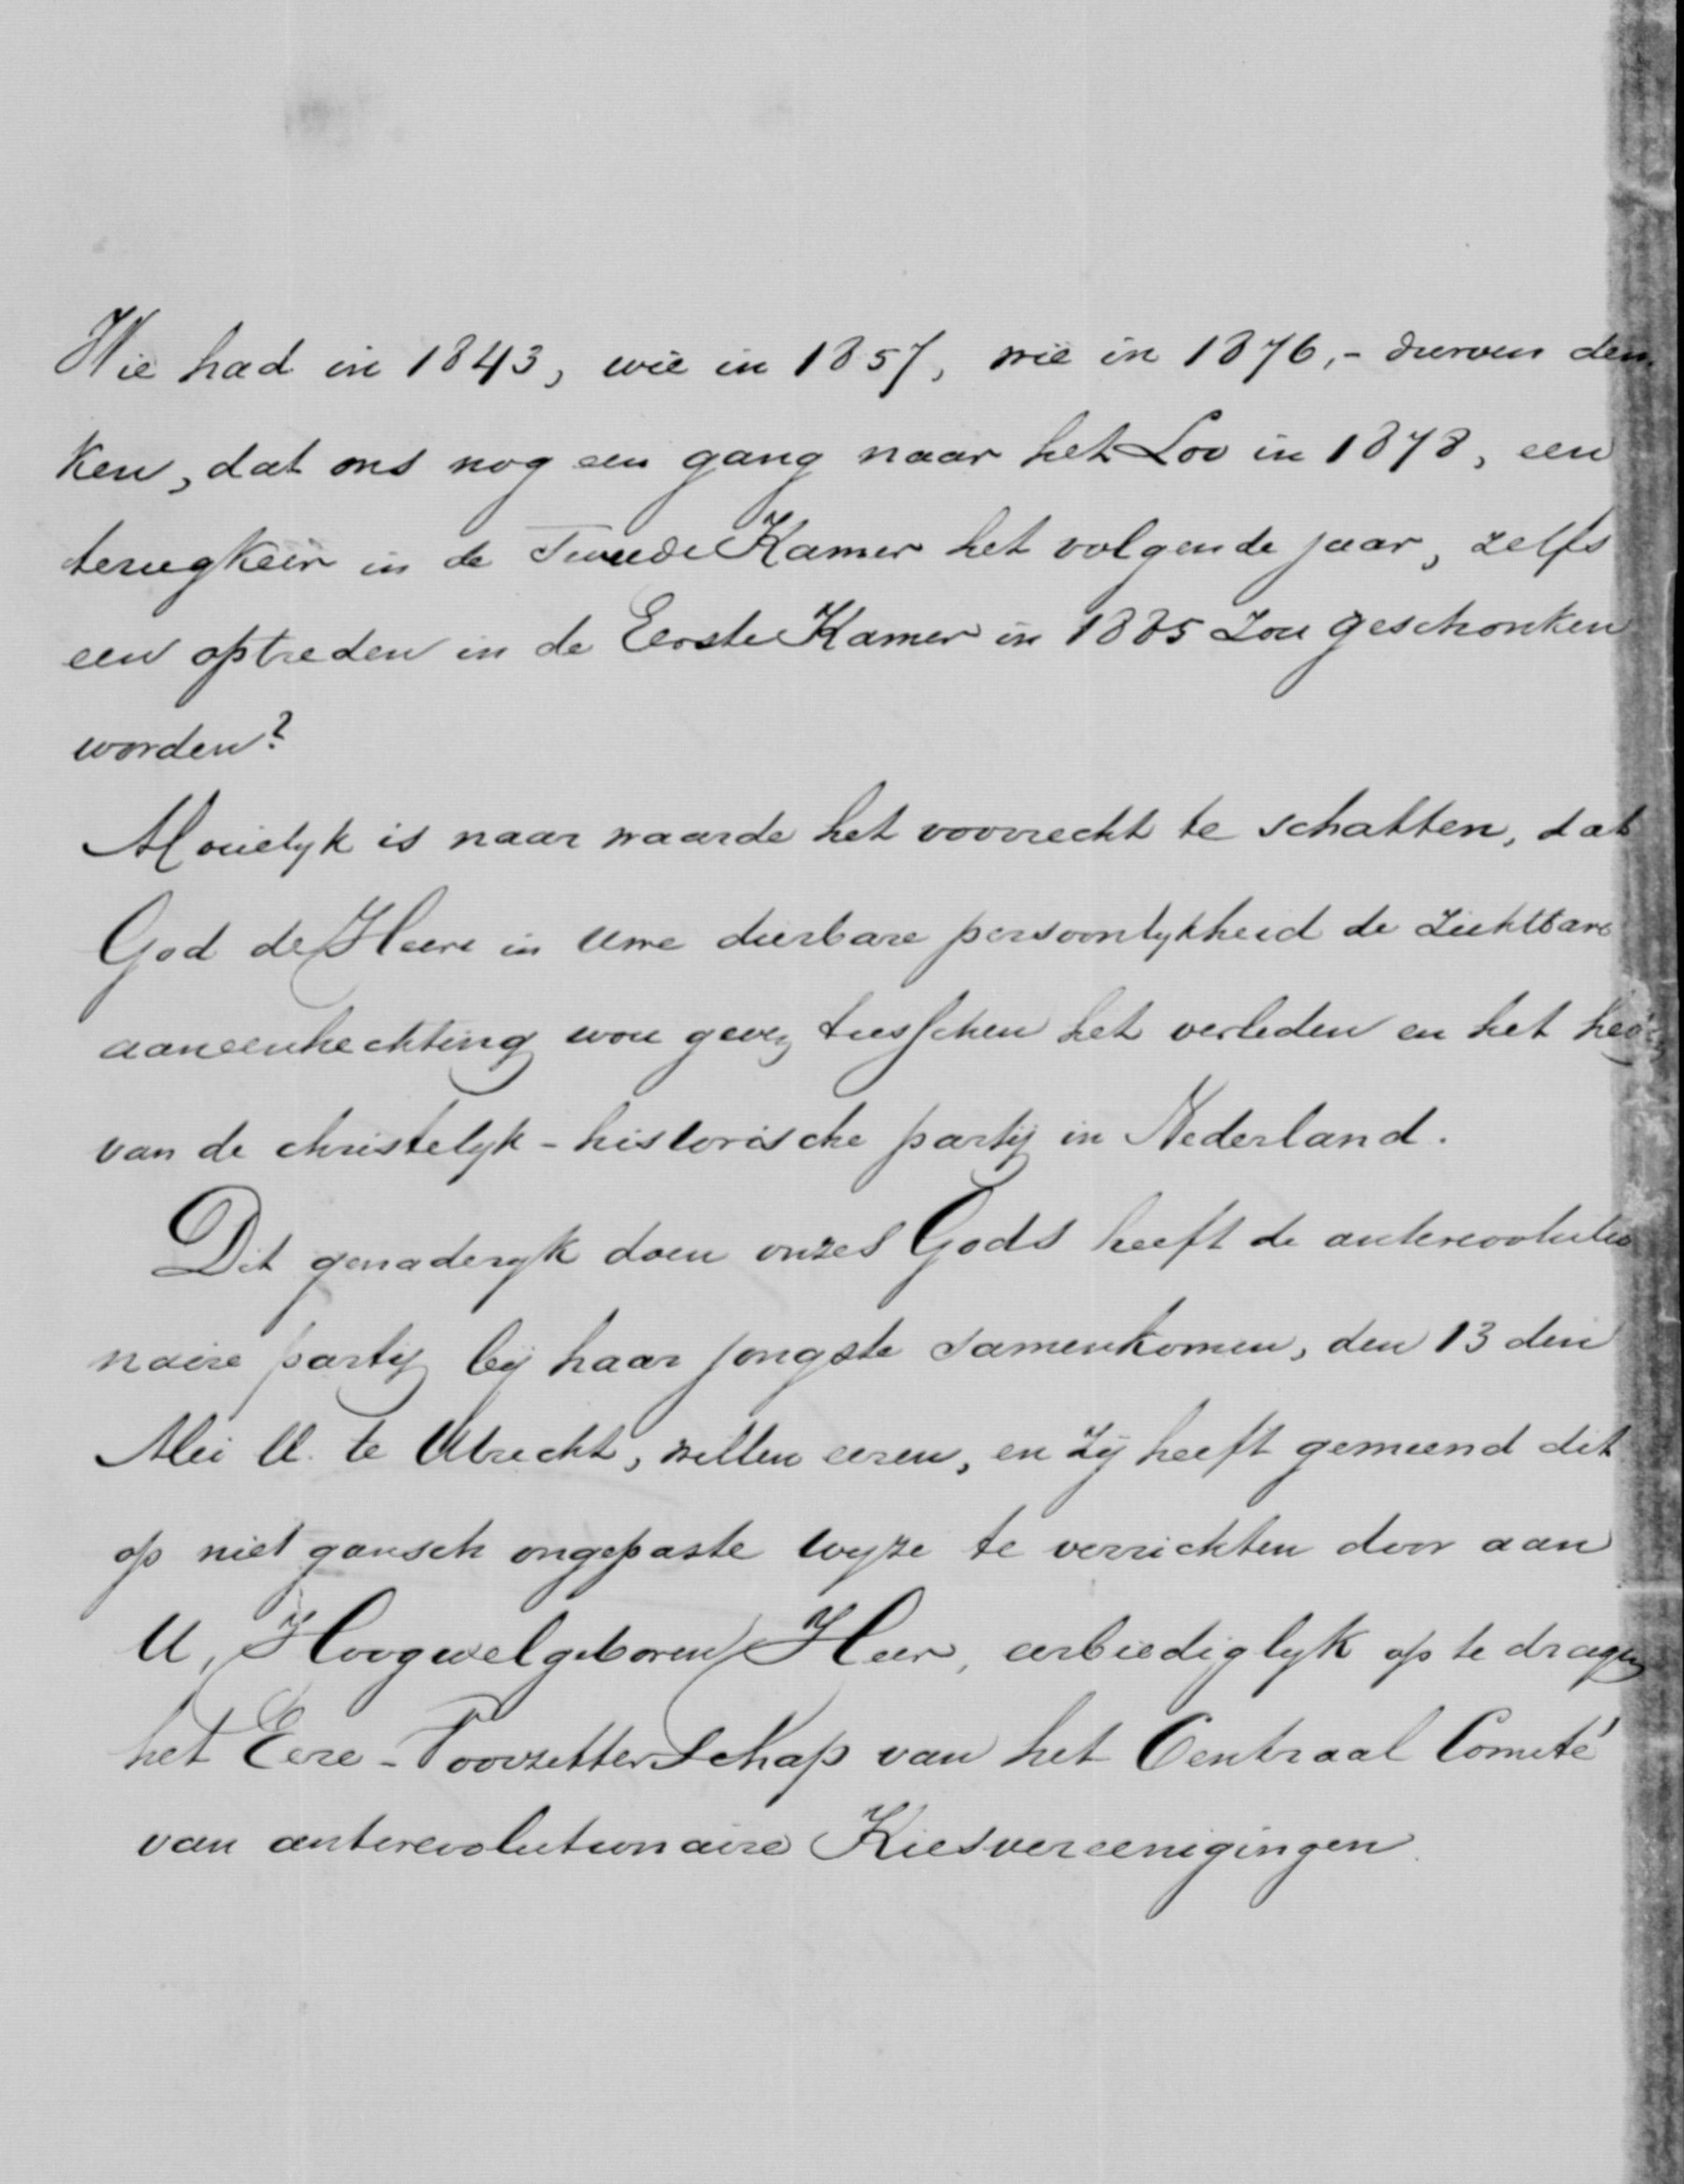 Wie had in 1843, wie in 1857, wie in 1876,- durven den-
ken, dat ons nog een gang naar het Loo in 1878, een
terugkeer in de Tweede Kamer het volgende jaar, zelfs
een optreden in de Eerste Kamer in 1885 zou geschonken
worden?
Moeielyk is naar waarde het voorrecht te schatten, dat
God de Heere in Uwe dierbare persoonlykheid de zichtbare
aaneenhechting wou geven tusschen het verleden en het
van de christelyk-historische partij in Nederland.
Dit genaderyk doen onzes Gods heeft de antirevolutio
naire partij bij haar jongste samenkomen, den 13 den
Mei ll. te Utrecht, willen eeren, en zij heeft gemeend dit
op niet gansch ongepaste wyze te verrichten door aan
U, Hoogwelgeboren Heer, eerbiediglyk op te dragen
het Eere-Voorzitterschap van het Centraal Comité
van antirevolutionaire Kiesvereenigingen.